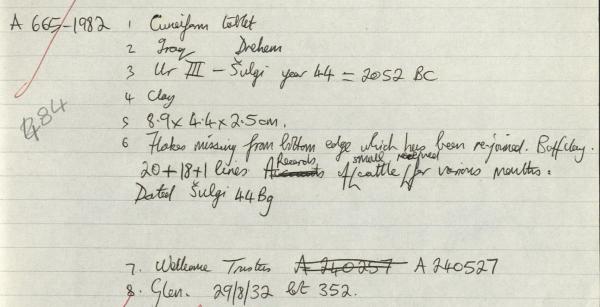 A 665-1982 1 Cuneiform tablet
2 Iraq Drehem
3 Ur III - Šulgi year 44 = 2052 BC
4 Clay
5 8.9 x 4.4 x 2.5cm.
6 Flakes missing from bottom edge which has been rejoined. Buff clay.
20+18+1 lines Accounts Records of small cattle received for various months.
Dated Šulgi 44 Bg
7. Wellcome Trustees A 240257 A 240527
8. Glen. 29/8/32 lot 352.
84